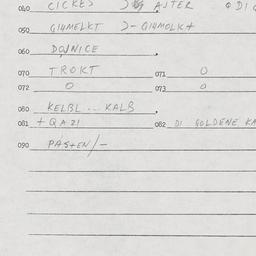 040 CICKES AJTER
050 GIHMELKT >- GIHMOLK+
060 DOJNICE
070 TROKT 071 0
072 0 073 0
080 KELBL... KALB
081 + QAZI 082 DI GOLDENE KA
090 PASTEN/-